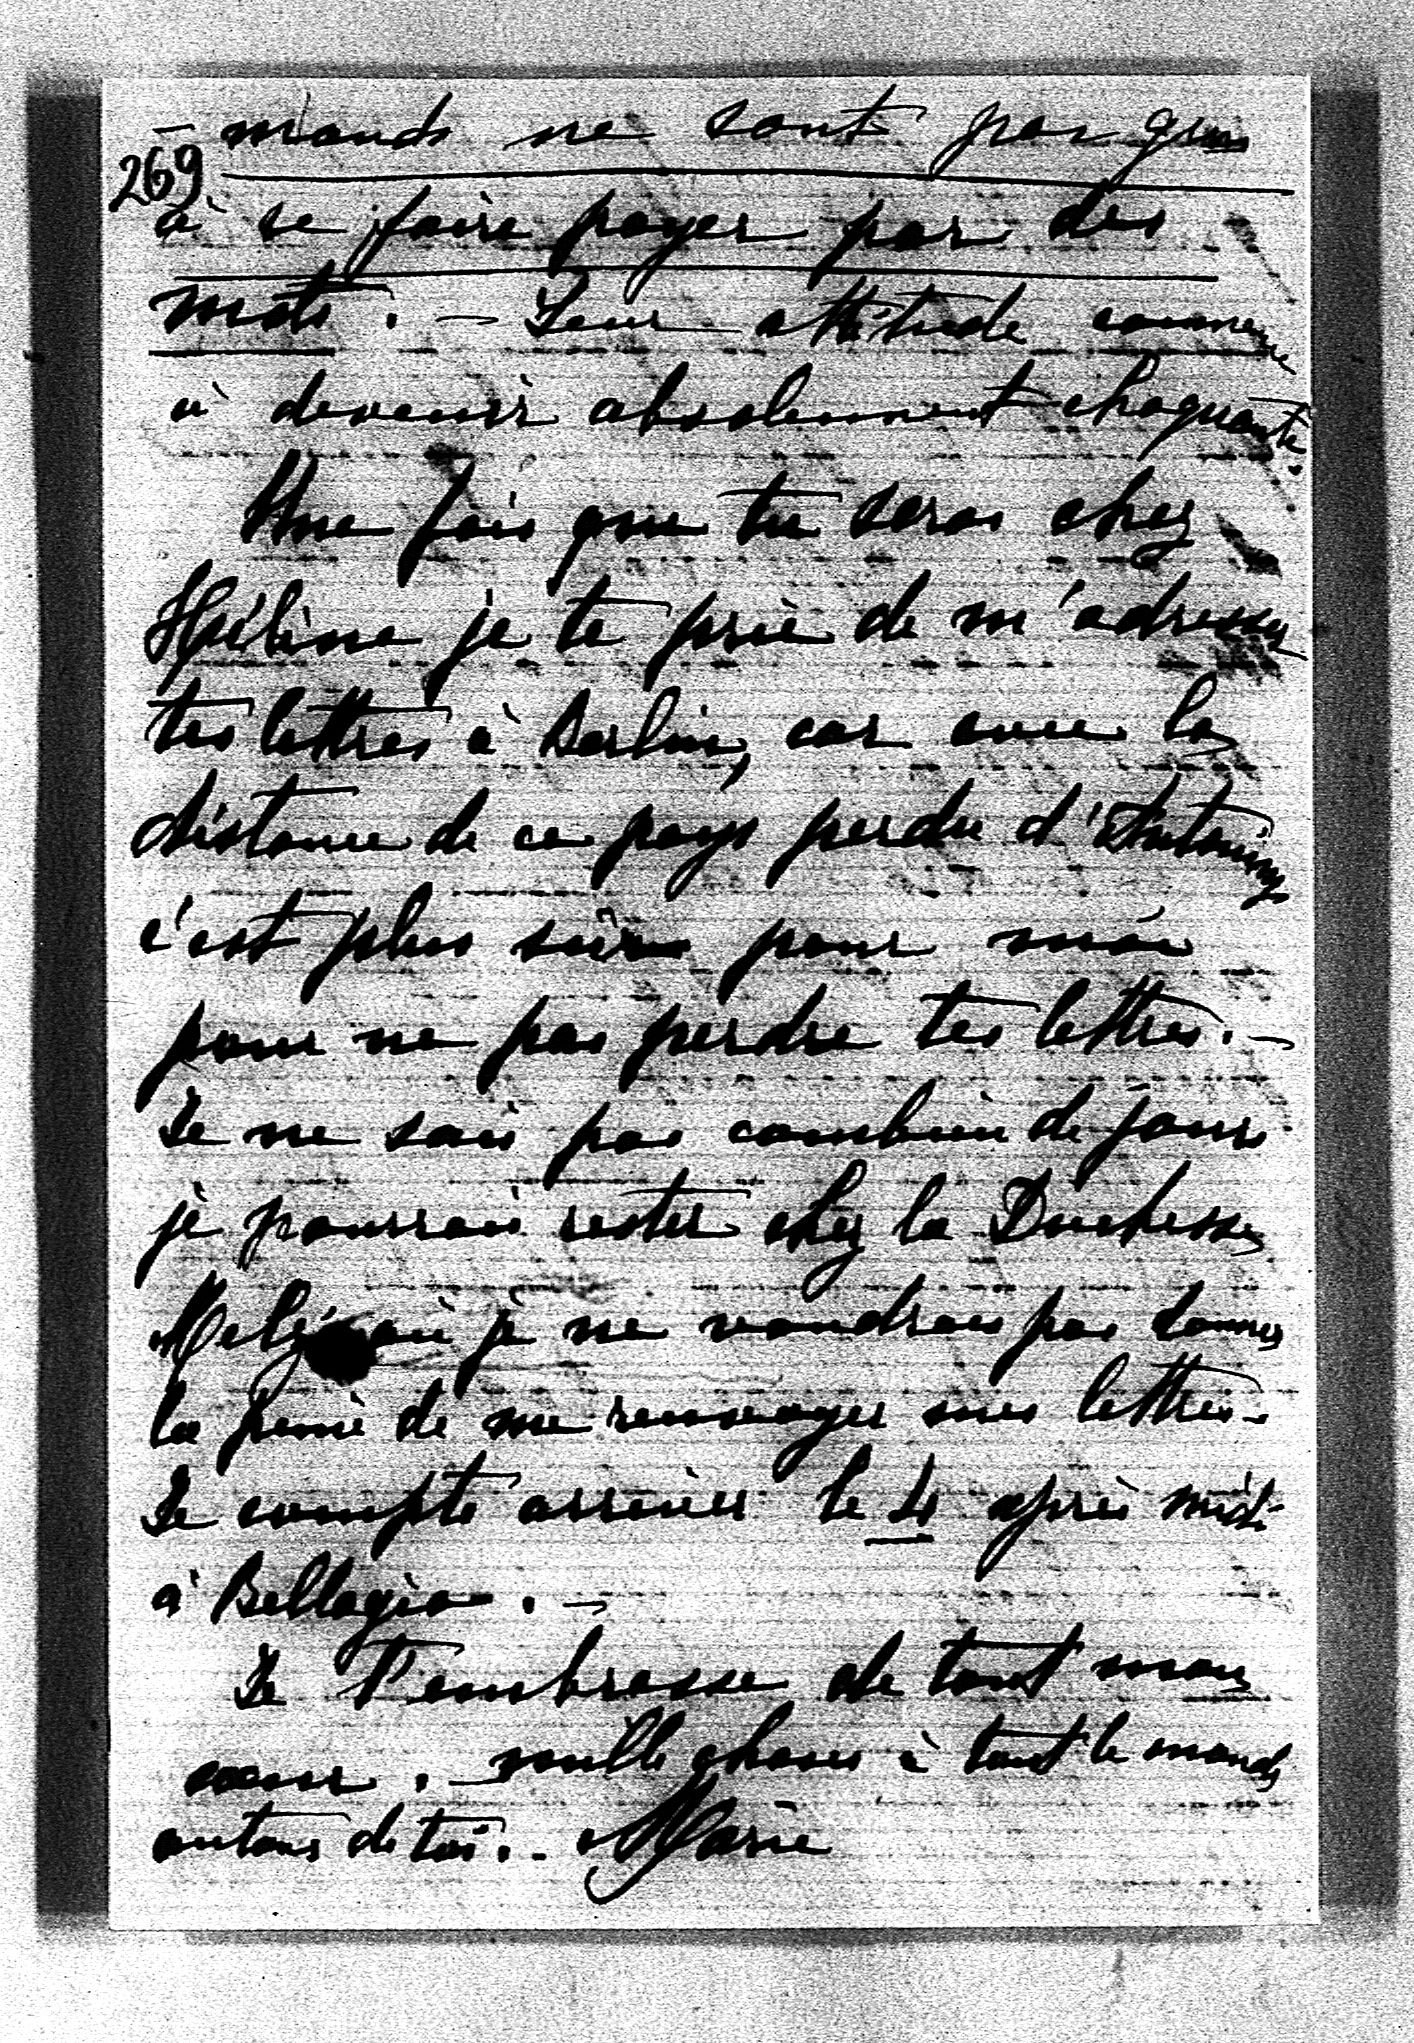 - mands ne sont pas gens
269
à se faire payer par des
mots. — Leur attitude commence
à devenir absolument choquante.
Une fois que tu seras chez
Hélène je te prie de m'adresser
tes lettres à Berlin, car avec la
distance de ce pays perdu d'Antoniny
c'est plus sûr pour moi
pour ne pas perdre tes lettres. —
Je ne sais pas combien de jours
je pourrai rester chez la Duchesse
Melzi où je ne voudrais pas donner
la peine de me renvoyer mes lettres.
Je compte arriver le 4 après midi
à Bellagio. —
Je t'embrasse de tout mon
cœur. — mille choses à tout le monde
autour de toi. - Marie